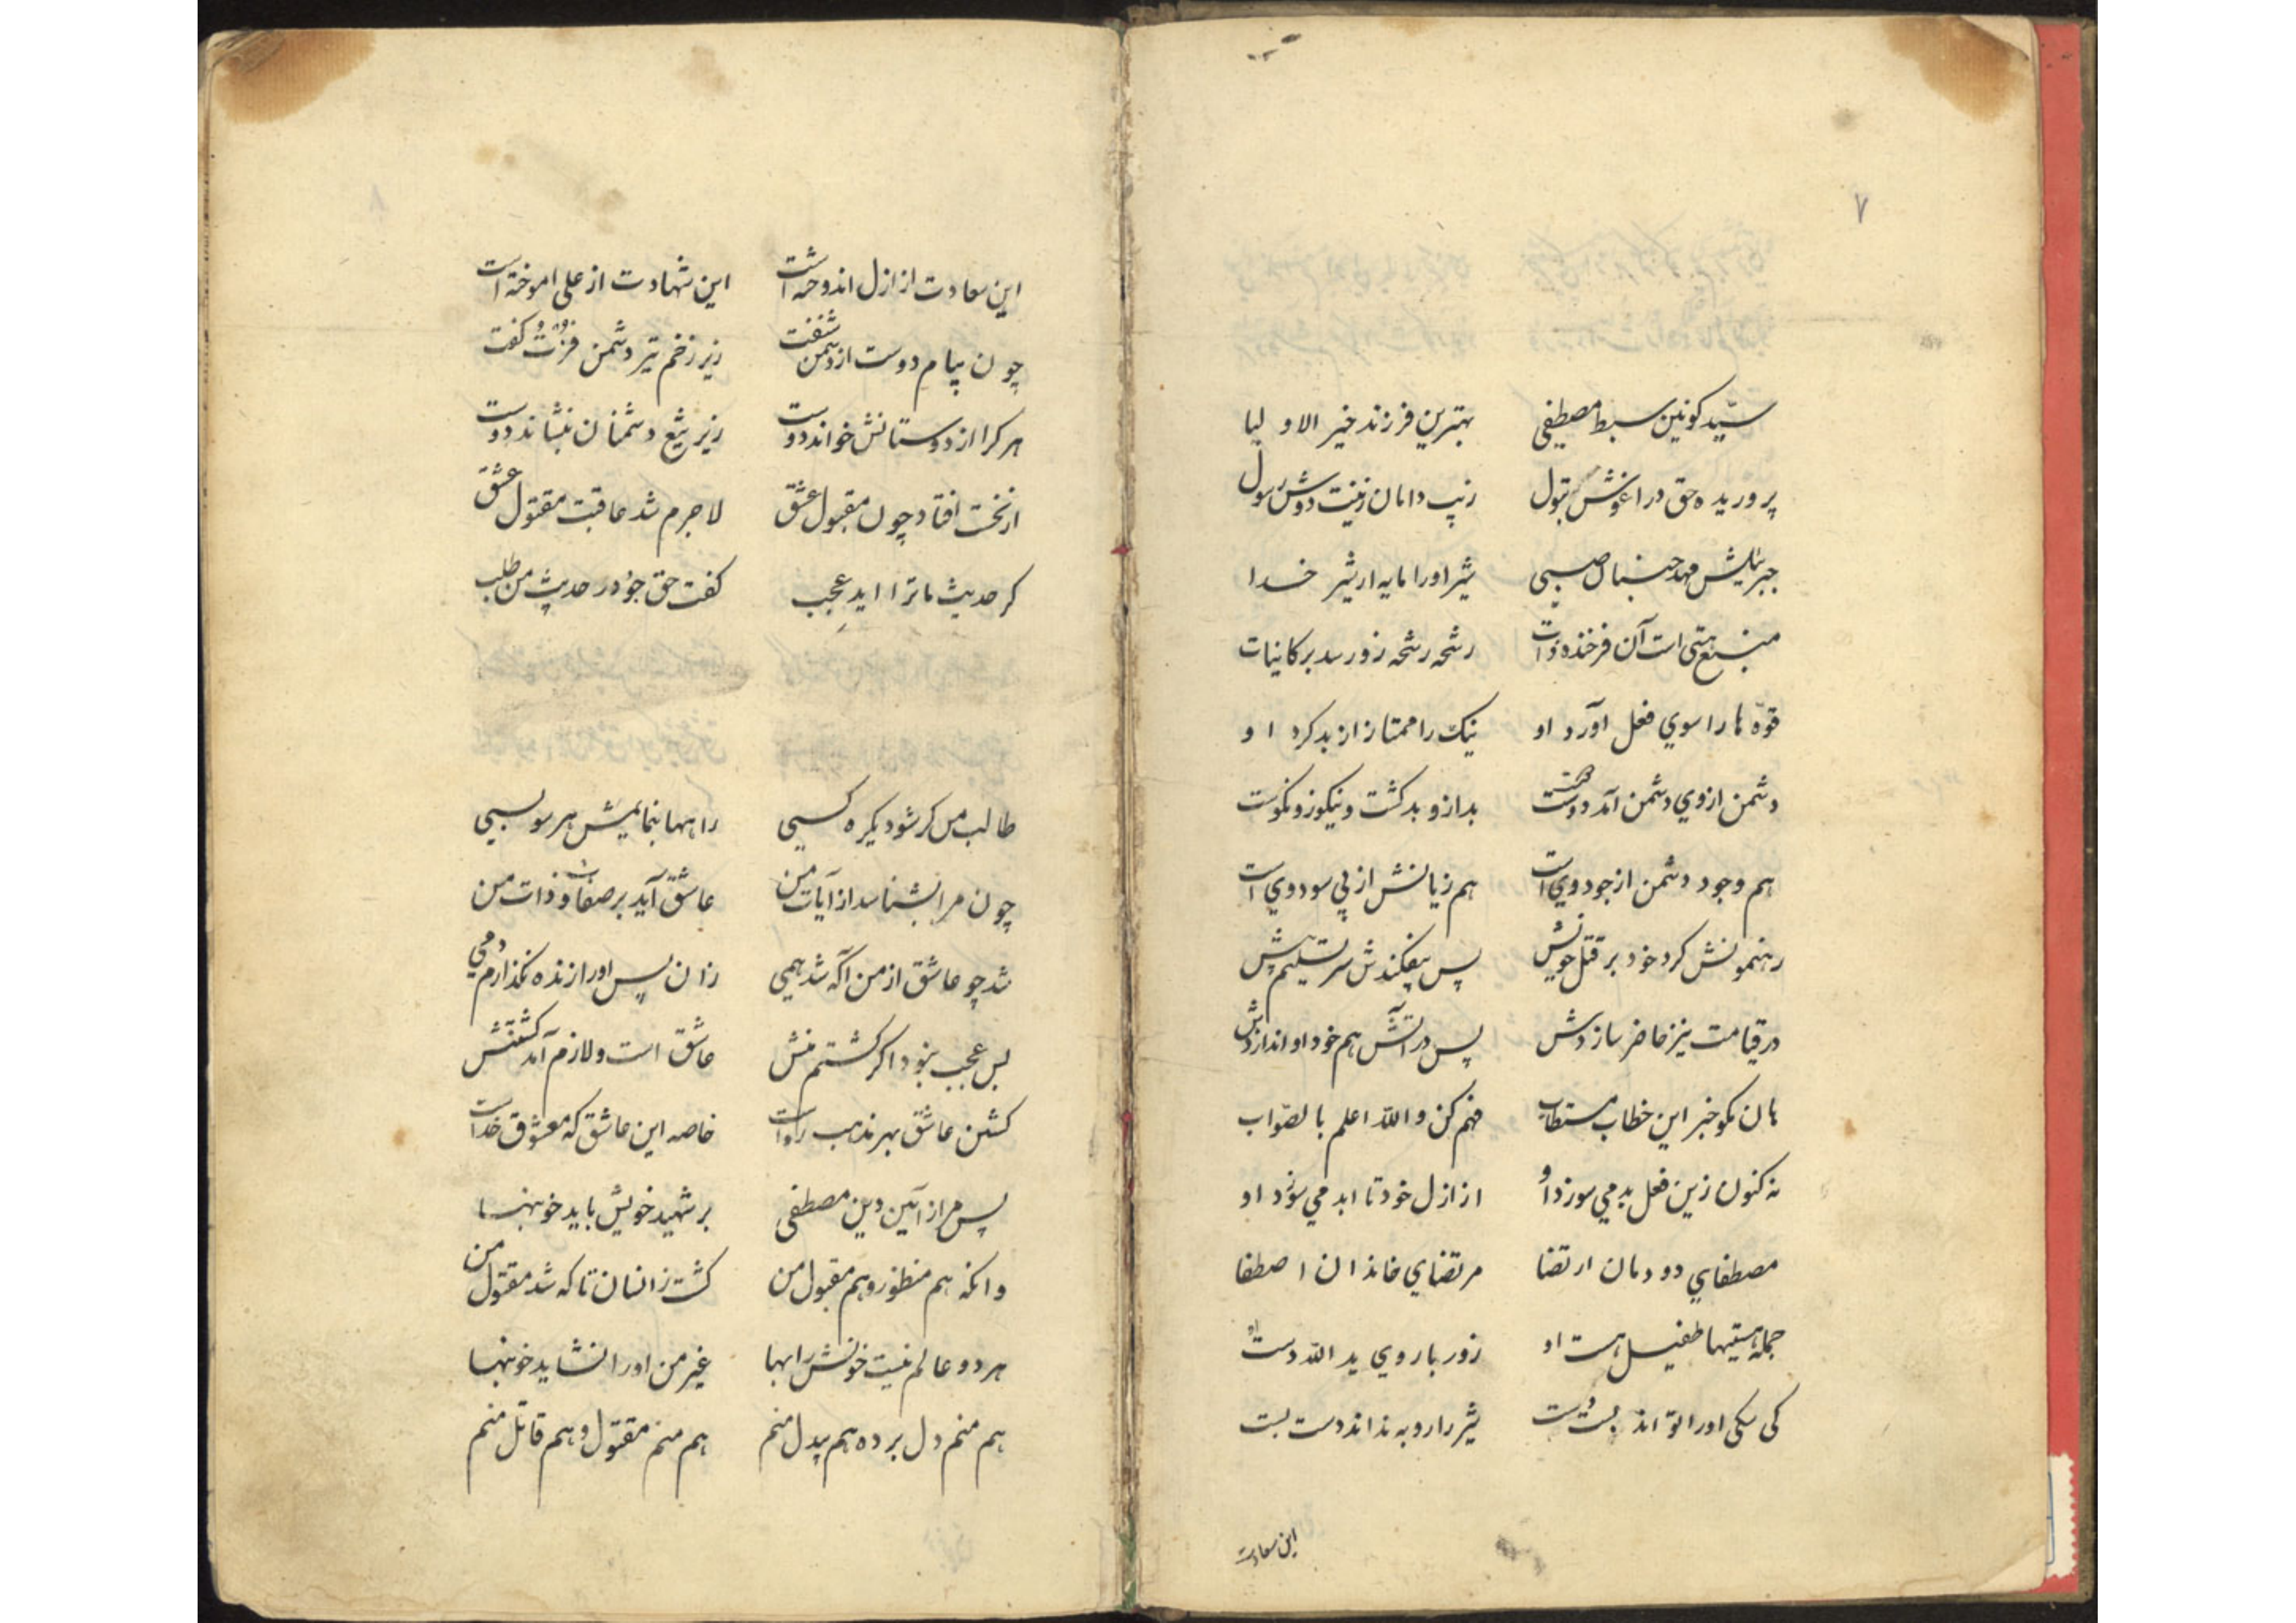 ۷
سیّد کونین سبط مصطفی بهترین فرزند خیر الاولیا
پروریده حق در اغوش بتول زیب دامان زینت دوش رسول
جبرئیلش مهد جنبال صبی شیر اورا مایه از شیر خدا
منبع هستی است آن فرخنده ذات رشحه رشحه زو رسد بر کاینات
قوّه ها را سوی فعل آورد او نیک را ممتاز از بد کرد او
دشمن از وی دشمن آمد دوست دوست بد ازو بد کشت و نیکو زو نکوست
هم وجود دشمن از جود وی است هم زیانش از پی سود وی است
رهنمونش کرد خود بر قتل خویش پس بیفکندش سر تسلیم پیش
در قیامت نیز حاضر سازدش پس در آتش هم خود او اندازدش
هان نکو خبر این خطاب مستطاب فهم کن والله اعلم بالصّواب
نه کنون زین فعل بد می سوزد او از ازل خود تا ابد می سوزد او
مصطفای دودمان ارتضا مرتضای خاندان اصطفا
جمله هستیها طفیل هست او زور بازوی ید الله دست او
کی یکی اورا تواند بست دست شیر را روبه نداند دست بست
این سعادت
۸
این سعادت از ازل اندوخته است این شهادت از علی اموخته است
چون پیام دوست از دشمن شنفت زیر زخم تیر دشمن فزت گفت
هر کرا از دوستانش خواند دوست زیر تیغ دشمنان بنشاند دوست
از نخست افتاد چون مقبول عشق لاجرم شد عاقبت مقتول عشق
کر حدیث ما ترا اید عجب کفت حق جو در حدیث من طلب
طالب من کر شود یکره کسی راهها بنمایمش هر سو بسی
چون مرا بشناسد از آیات من عاشق آید بر صفات و ذات من
شد چو عاشق از من آکه شد همی زان پس اورا زنده نکذارم دمی
بس عجب نبود اکر کشتم منش عاشق است و لازم آمد کشتنش
کشتن عاشق بهر مذهب رواست خاصه این عاشق که معشوق خداست
پس مر از آئین دین مصطفی بر شهید خویش باید خونبها
وانکه هم منظور و هم مقبول من کشت زانسان تا که شد مقتول من
هر دو عالم نیست خونش را بها غیر من اورا نشاید خونبها
هم منم دل برده هم بیدل منم هم منم مقتول و هم قاتل منم